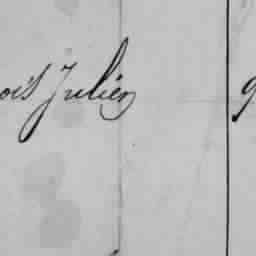 ois Julien